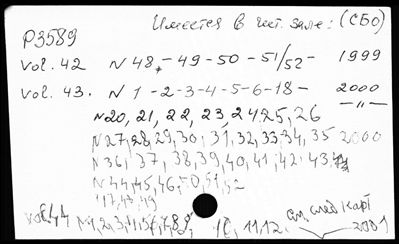 Имеется в чит. зале: (СБО)
Р3589
vol. 42 N 48, - 49 - 50 - 51/52 - 1999
vol. 43. N 1 - 2 - 3 - 4 - 5 - 6 - 18 - 2000
N 20, 21, 22, 23, 24 25, 26 - " -
N 27, 28, 29, 30, 31, 32, 33, 34, 35 2000
N 36, 37, 38, 39, 40, 41, 42, 43,
N 44, 45, 46, 50, 51, 52
17, 43, 49
vol. 44 N 1, 2, 3, 4, 5, 6, 7, 8, 9, 10, 11, 12. см. след. карт
2001